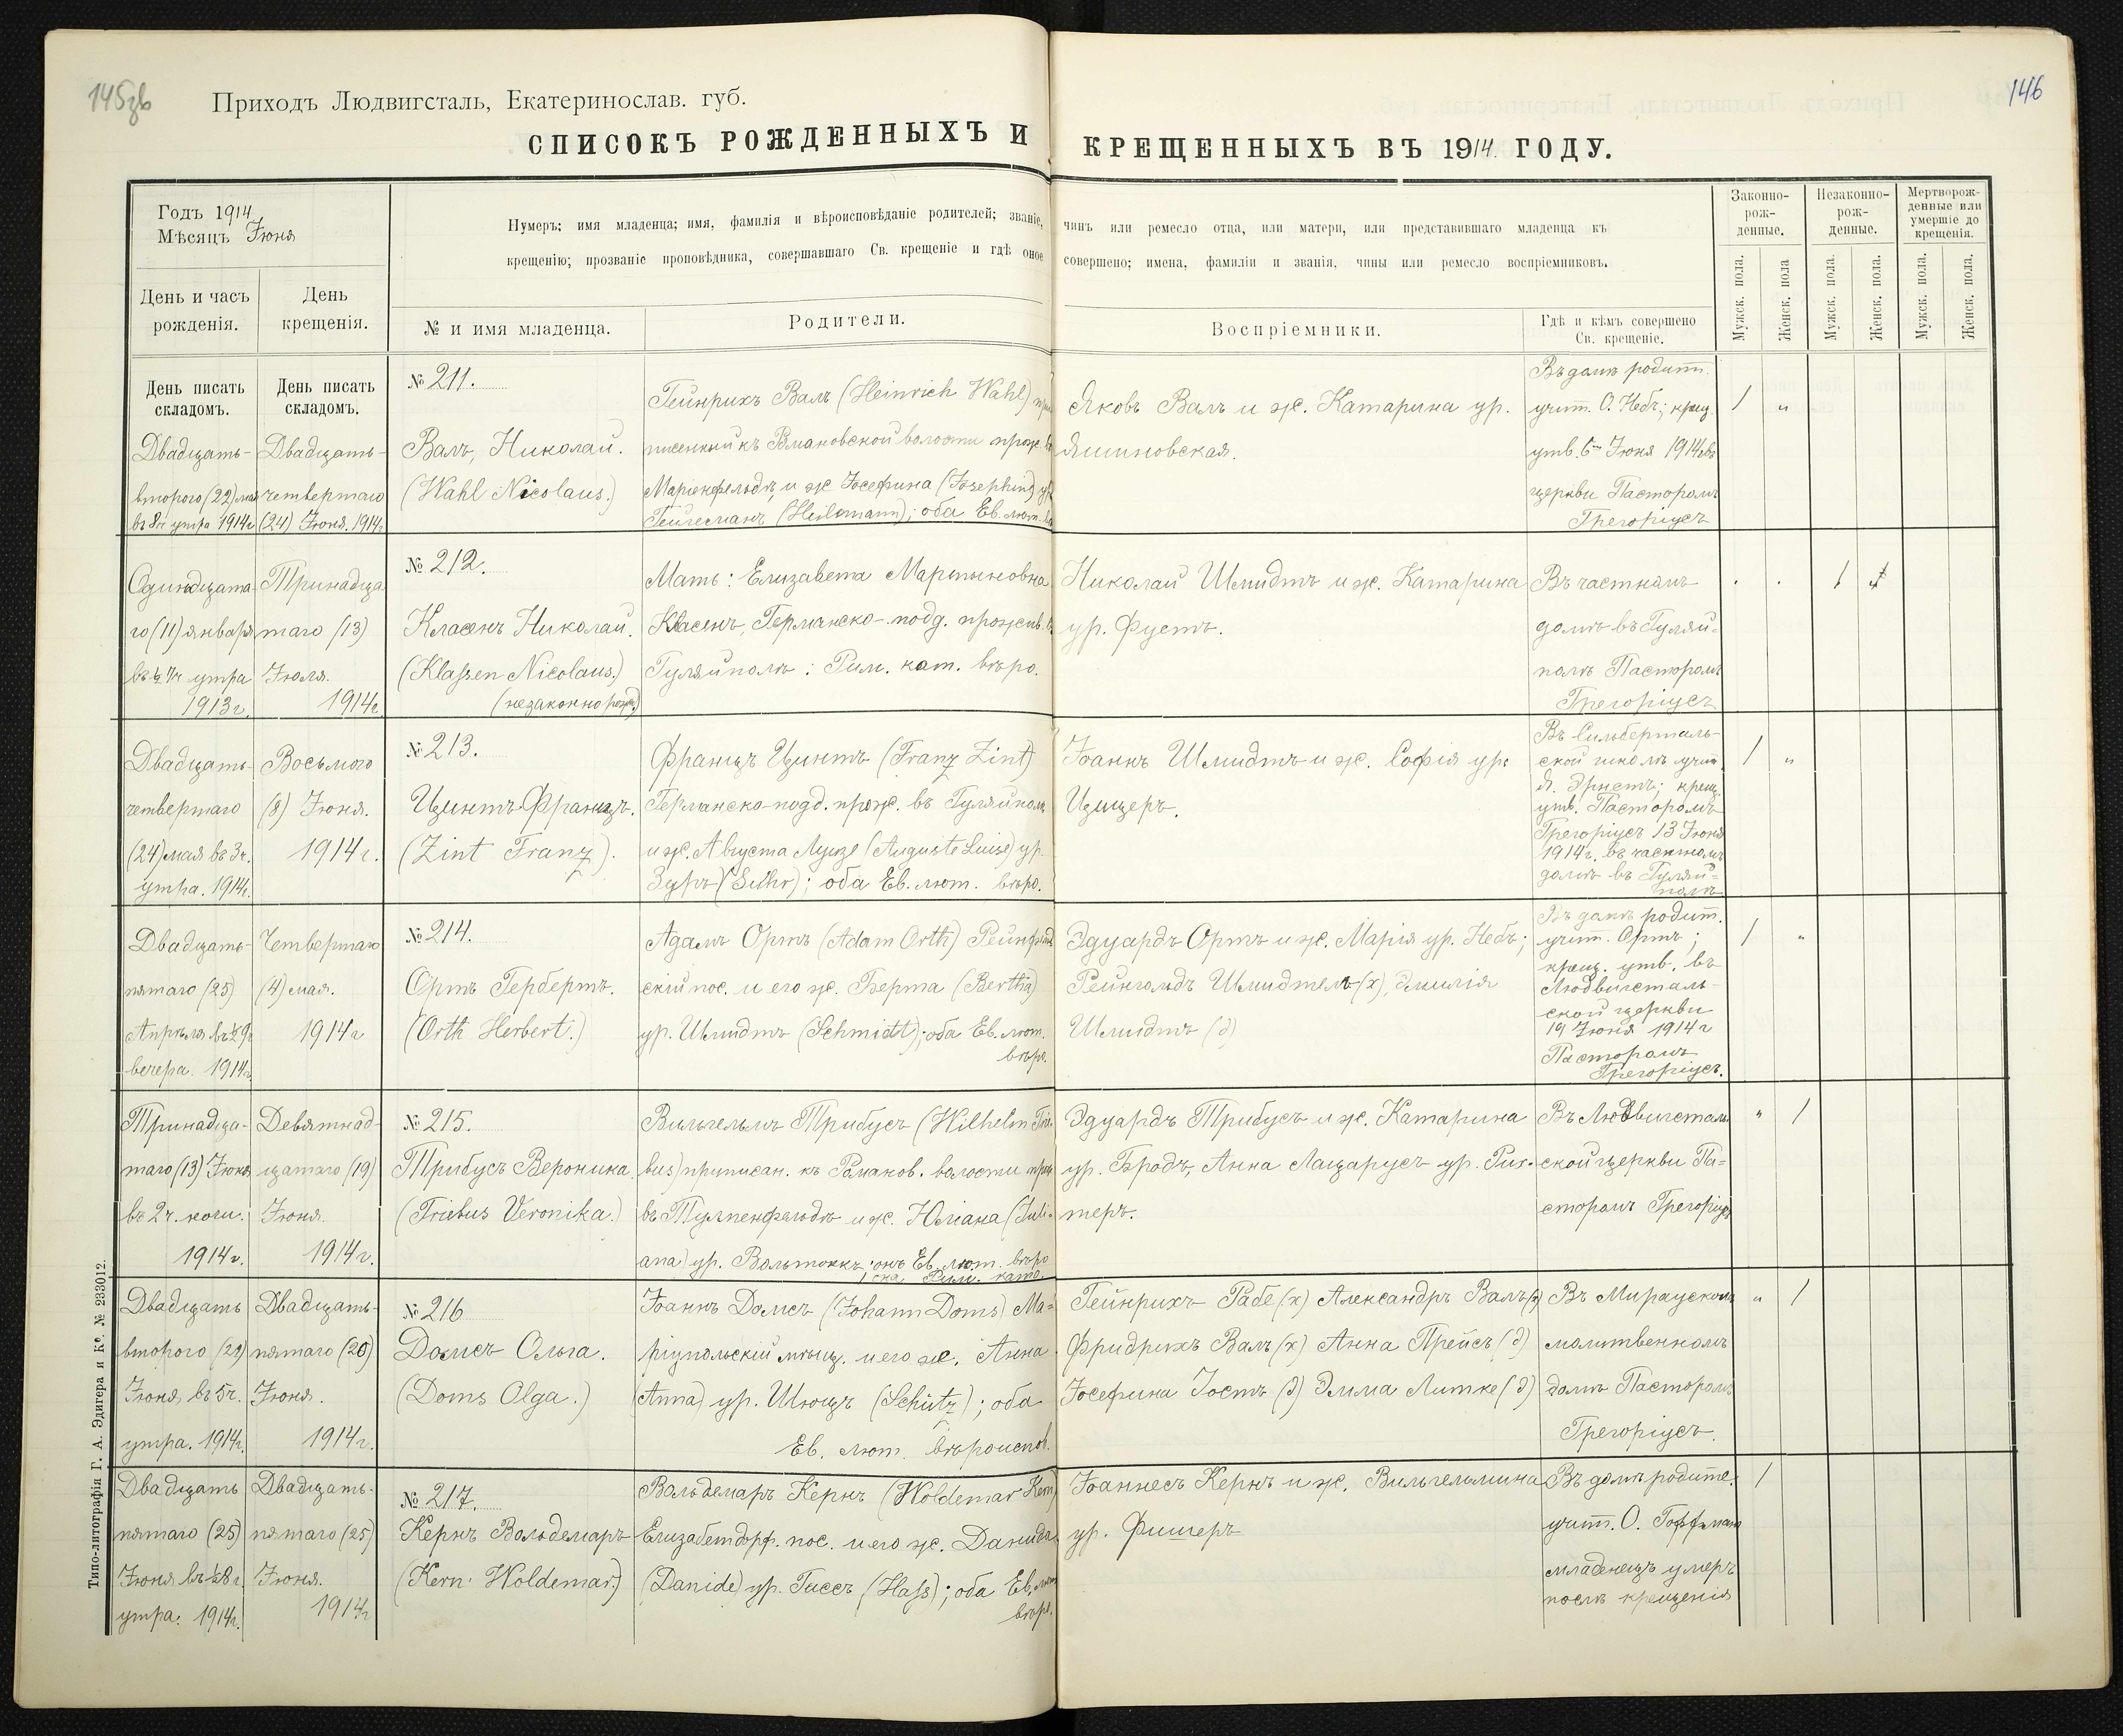 145зв
146
Приходъ Людвигсталь, Екатеринослав. губ.
СПИСОКЪ РОЖДЕННЫХЪ И КРЕЩЕННЫХЪ ВЪ 1914 ГОДУ.
Годъ 1914
Мѣсяцъ Іюня
Нумеръ; имя младенца; имя, фамилія и вѣроисповѣданіе родителей; званіе, чинъ или ремесло отца, или матери, или представившаго младенца къ
крещенію; прозваніе проповѣдника, совершавшаго Св. крещеніе и гдѣ оное совершено; имена, фамиліи и званія, чины или ремесло воспріемниковъ.
Законно-
рож-
денные.
Незаконно-
рож-
денные.
Мертворож-
денные или
умершіе до
крещенія.
День и часъ
рожденія.
День
крещенія.
№ и имя младенца.
Родители.
Воспріемники.
Гдѣ и кѣмъ совершено
Св. крещеніе.
Мужск. пола.
Женск. пола
Мужск. пола.
Женск. пола.
Мужск. пола.
Женск. пола.
День писать
складомъ.
День писать
складомъ.
Двадцать-
второго (22) мая
въ 8 ч утра 1914г
Двадцать-
четвертаго
(24) Іюня. 1914г
№ 211.
Валъ, Николай.
(Wahl Nicolaus.)
Гейнрихъ Валъ (Heinrich Wahl)
писенный къ Романовской волости прож.
Маріенфельдѣ, и ж Іосефина (Josephine)
Гейлеманъ (Heilemann); оба Ев. лют.
Яковъ Валъ и ж. Катарина ур.
Яшиновская.
Въ домѣ родит.
учит. О. Небъ; крещ.
утв. 6 Іюня 1914 въ
церкви Пасторомъ
Грегоріусъ
/ "
Одинадцата-
го (11) января
въ ½ 7ч утра
1913г.
Тринадца-
таго (13)
Іюля.
1914г.
№ 212.
Класенъ Николай.
(Klassen Nicolaus.)
(незаконнорож.)
Мать: Елизавета Мартыновна
Класенъ, Германско-подд. прожив. въ
Гуляйполѣ: Рим. кат. вѣро.
Николай Шмидтъ и ж. Катарина
ур. Фуетъ.
Въ частномъ
домѣ въ Гуляй-
полѣ Пасторомъ
Грегоріусъ
Двадцать-
четвертаго
(24) мая въ 3ч.
утра. 1914г.
Восьмого
(8) Іюня.
1914г.
№ 213.
Цинтъ Францъ.
(Zint Franz).
Францъ Цинтъ (Franz Zint)
Германско-подд. прож. въ Гуляйполѣ
и ж. Августа Луизе (Auguste Luise) ур.
Зуръ (Suhr); оба Ев. лют. вѣро.
Іоаннъ Шмидтъ и ж. Софія ур.
Цицеръ.
Въ Сильберталь-
ской школѣ учит.
Я. Эрнстъ; крещ.
утв. Пасторомъ
Грегоріусъ 13 Іюня
1914г. въ частномъ
домѣ въ Гуляй-
полѣ
/ "
Двадцать-
пятаго (25)
Апрѣля въ ½ 9ч
вечера. 1914г.
Четвертаго
(4) мая.
1914г
№ 214.
Ортъ Гербертъ.
(Orth Herbert.)
Адамъ Ортъ (Adam Orth)
скій пос. и его ж. Берта (Bertha)
ур. Шмидтъ (Schmidt); оба Ев. лют.
вѣро.
Эдуардъ Ортъ и ж. Марія ур. Небъ;
Рейнгольдъ Шмидтель (х), Эмилія
Шмидтъ (д)
Въ домѣ родит.
учит. Ортъ;
крещ. утв. въ
Людвигсталь-
ской церкви
19 Іюня 1914г
Пасторомъ
Грегоріусъ.
/ "
Тринадца-
таго (13) Іюня
въ 2ч. ночи.
1914г.
Девятнад-
цатаго (19)
Іюня.
1914г.
№ 215.
Трибусъ Вероника.
(Triebus Veronika.)
Вильгельмъ Трибусъ (Wilhelm Trie-
bus) приписан. къ Романов. волости прож
въ Тулпенфельдѣ и ж. Юліана (Juli-
ana) ур. ; онъ Ев. лют. вѣро
она Рим. като.
Эдуардъ Трибусъ и ж. Катарина
ур. Бродъ, Анна Лацарусъ ур. Рих-
теръ.
Въ Людвигсталь-
ской церкви Па-
сторомъ Грегоріусъ
" /
Двадцать
второго (22)
Іюня, въ 5ч.
утра. 1914г.
Двадцать-
пятаго (26)
Іюня.
1914г.
№ 216
Домсъ Ольга.
(Doms Olga.)
Іоаннъ Домсъ (Johann Doms) Ма-
ріупольскій мѣщ. и его ж. Анна
(Anna) ур. Шютцъ (Schütz); оба
Ев. лют. вѣроиспов.
Гейнрихъ Рабе (х) Александръ Валъ (х)
Фридрихъ Валъ (х) Анна Прейсъ (д)
Іосефина Іостъ (д) Эмма Литке (д)
Въ Мираускомъ
молитвенномъ
домѣ Пасторомъ
Грегоріусъ.
" /
Двадцать
пятаго (25)
Іюня въ ½ 8 ч.
утра. 1914г.
Двадцать-
пятаго (25)
Іюня.
1914г
№ 217.
Кернъ Вольдемаръ
(Kern Woldemar.)
Вольдемаръ Кернъ (Woldemar Kern)
Елизабетдорф. пос. и его ж. Данида
(Danide) ур. Гассъ (Hass); оба Ев. лют
вѣро.
Іоаннесъ Кернъ и ж. Вильгельмина
ур. Фишеръ
Въ домѣ родите.
учит. О. Гоффманъ
младенецъ умеръ
послѣ крещенія
/
Типо-литографія Г. А. Эдигера и Кº. № 233012.